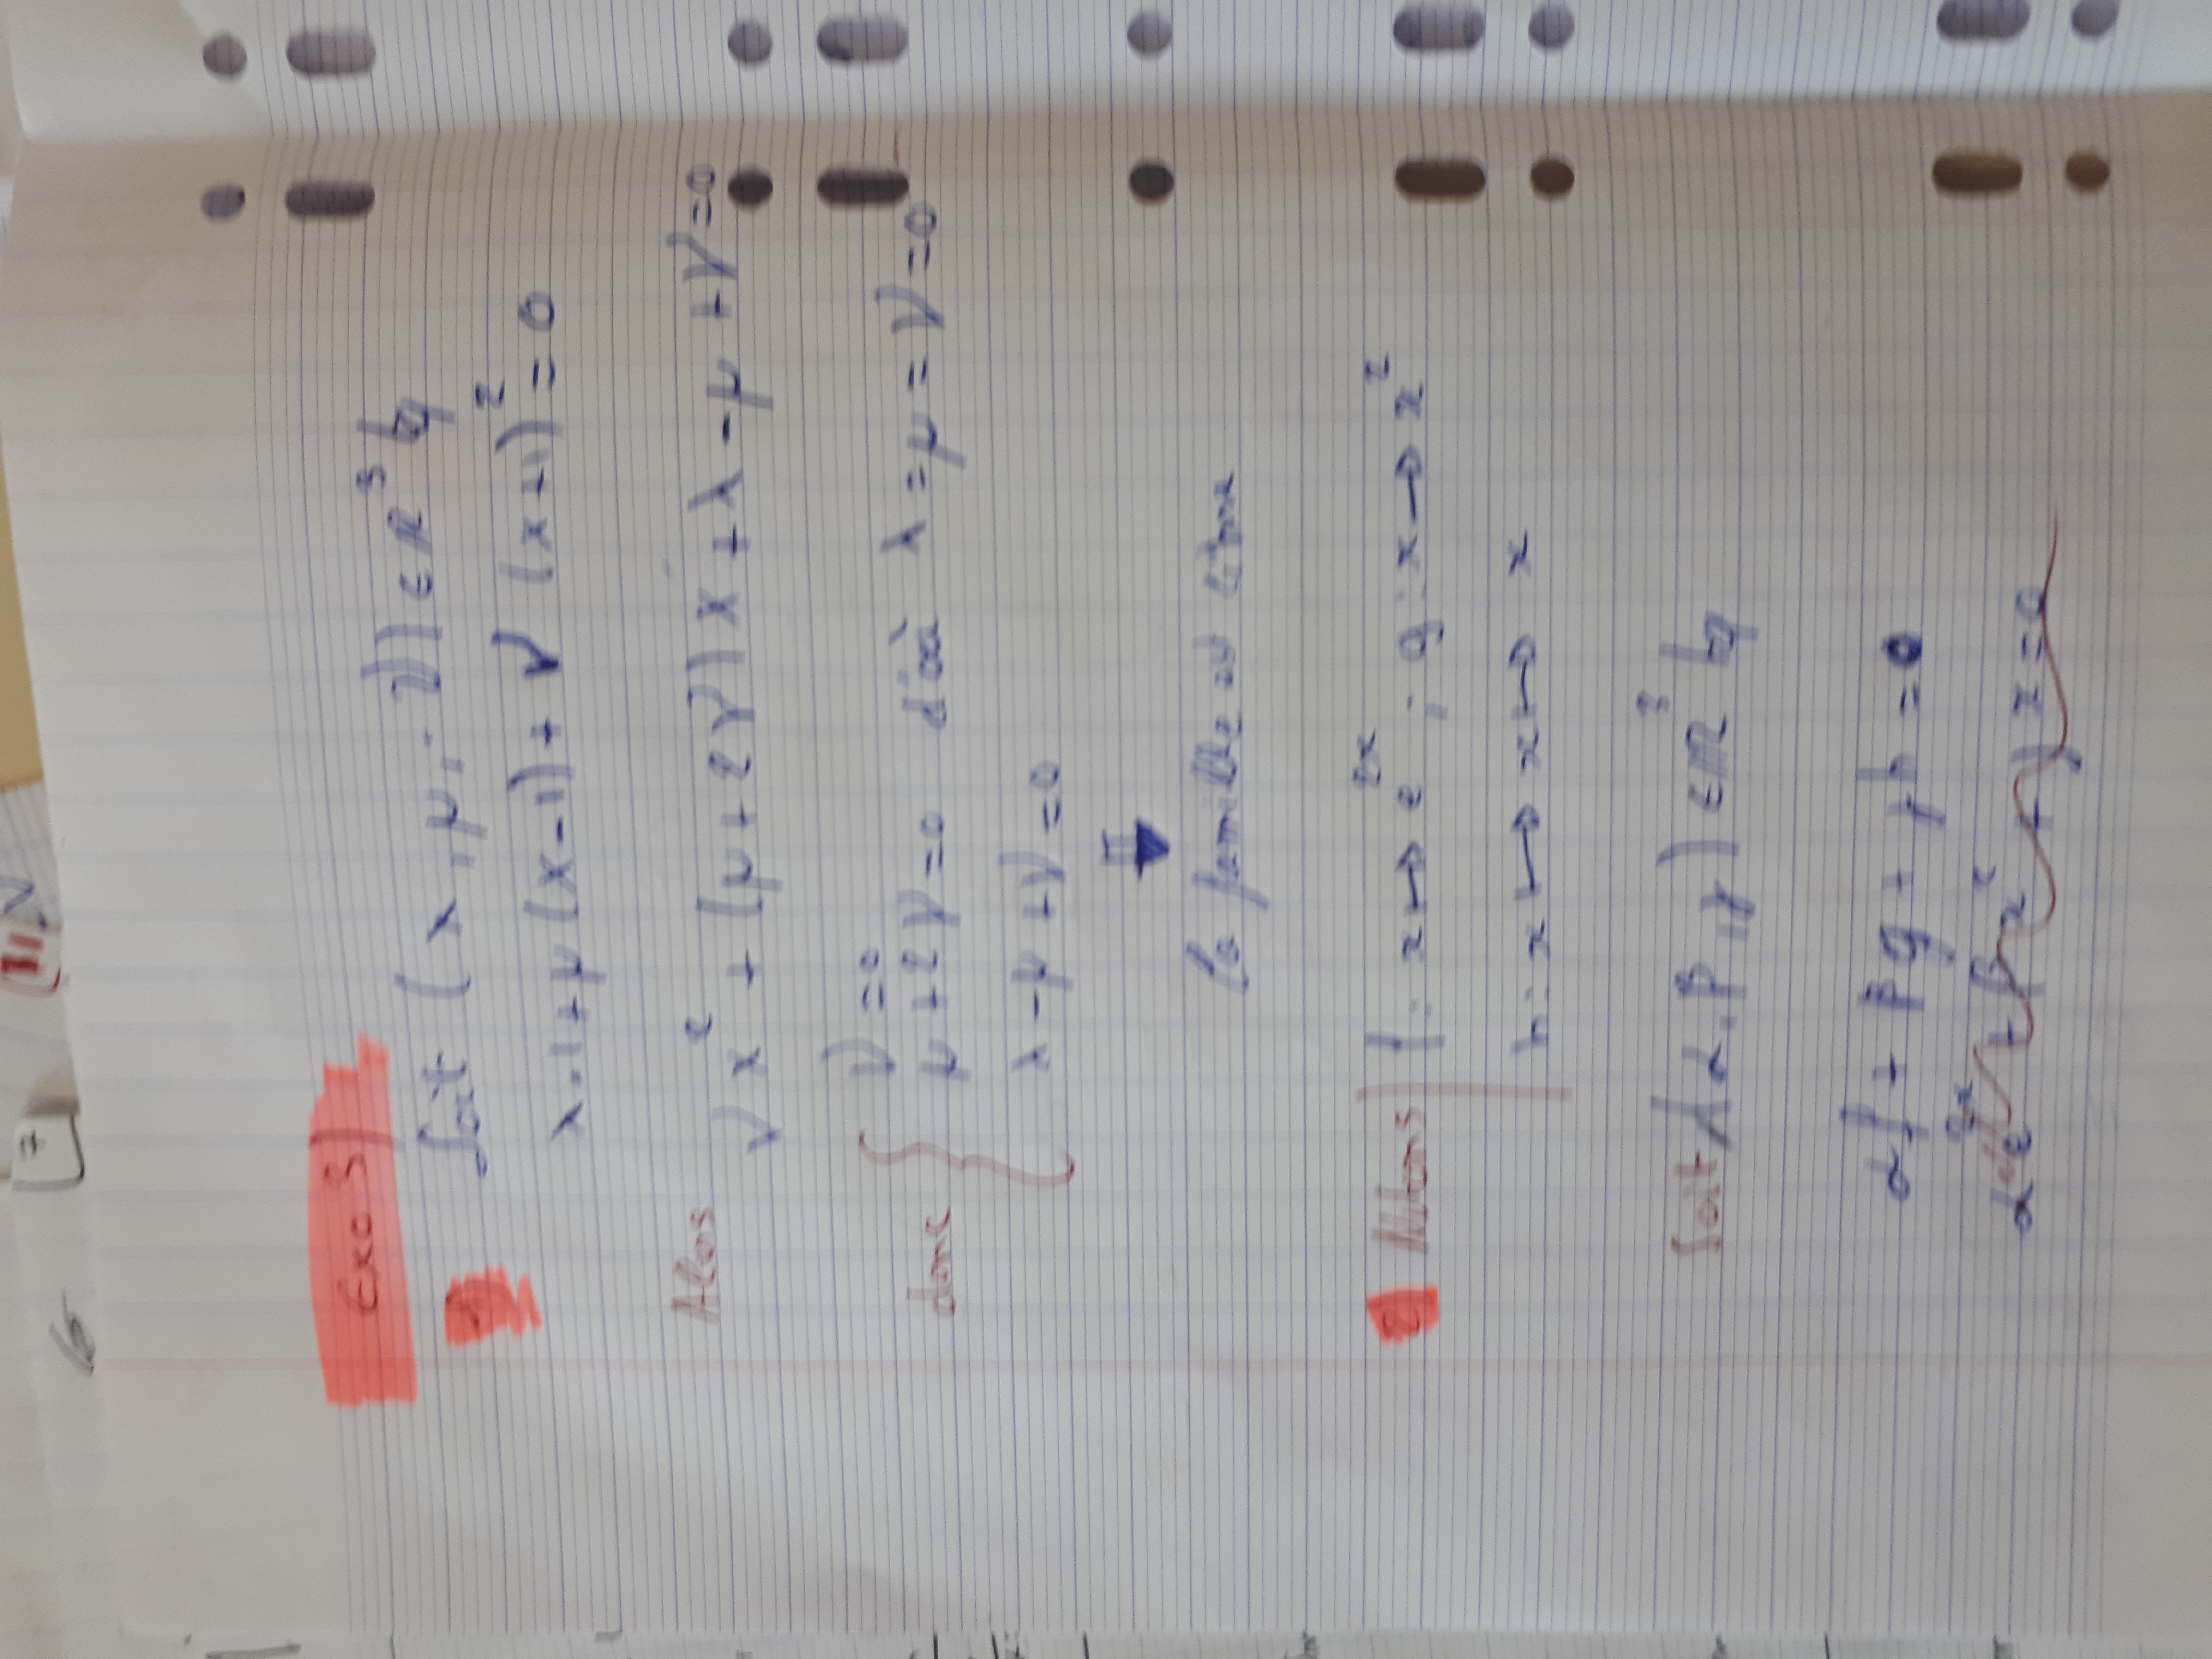 Exo 3)
1) Soit (λ, μ, ν) ∈ ℝ³ tq
λ·1 + μ(x-1) + ν(x+1)² = 0
Alors νx² + (μ+2ν)x + λ-μ+ν=0
donc { ν=0
μ+2ν=0 d'où λ=μ=ν=0
λ-μ+ν=0
⇓
la famille est libre
2) Notons | f: x↦e²ˣ ; g: x→x²
h: x↦x↦x
Soit (α, β, γ) ∈ ℝ³ tq
αf + βg + γh = 0